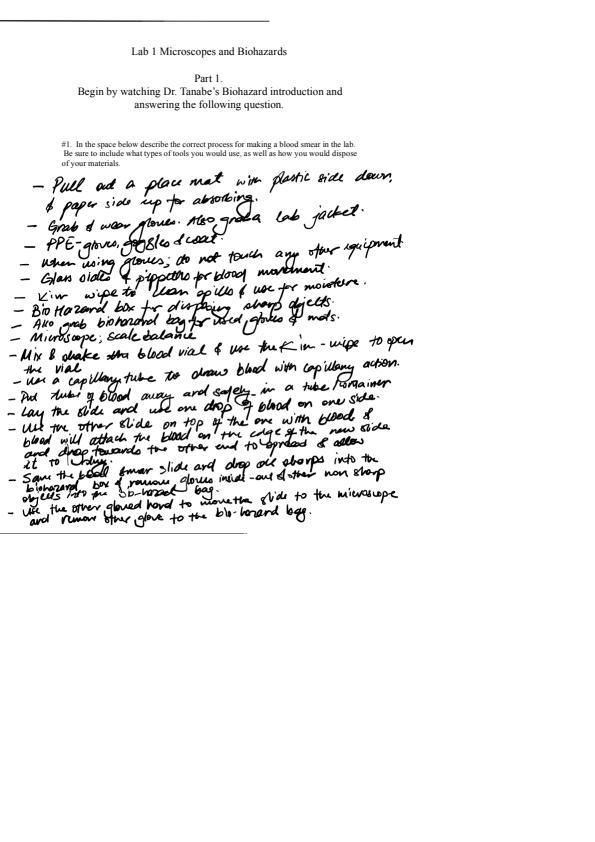 Lab 1 Microscopes and Biohazards
Part 1.
Begin by watching Dr. Tanabe's Biohazard introduction and
answering the following question.
#1. In the space below describe the correct process for making a blood smear in the lab.
Be sure to include what types of tools you would use, as well as how you would dispose
of your materials.
- Pull out a place mat with plastic side down,
& paper side up for absorbing.
- Grab & wear gloves. Also grab a lab jacket.
- PPE - gloves, goggles & coat.
- when using gloves; do not touch any other equipment
- Glass slides & pippettes for blood movement.
- Kim wipe to clean spills & use for moisture.
- Bio Hazard box for disposing sharp objects.
- Also grab biohazard bag for used gloves & mats.
- Microscope; scale balance
- Mix & shake the blood vial & use the Kim-wipe to open
the vial
- use a capillary tube to draw blood with capillary action.
- Put tube of blood away and safely in a tube/container
- Lay the slide and use one drop of blood on one side.
- Use the other slide on top of the one with blood &
blood will attach the blood on the edge of the new side
and drag towards the other end to spread & allow
it to
- Save the blood smear slide and drop all sharps into the
biohazard box & remove gloves inside-out & other non sharp
objects into the bio-hazard bag.
- Use the other gloved hand to move the slide to the microscope
and remove other glove to the bio-hazard bag.